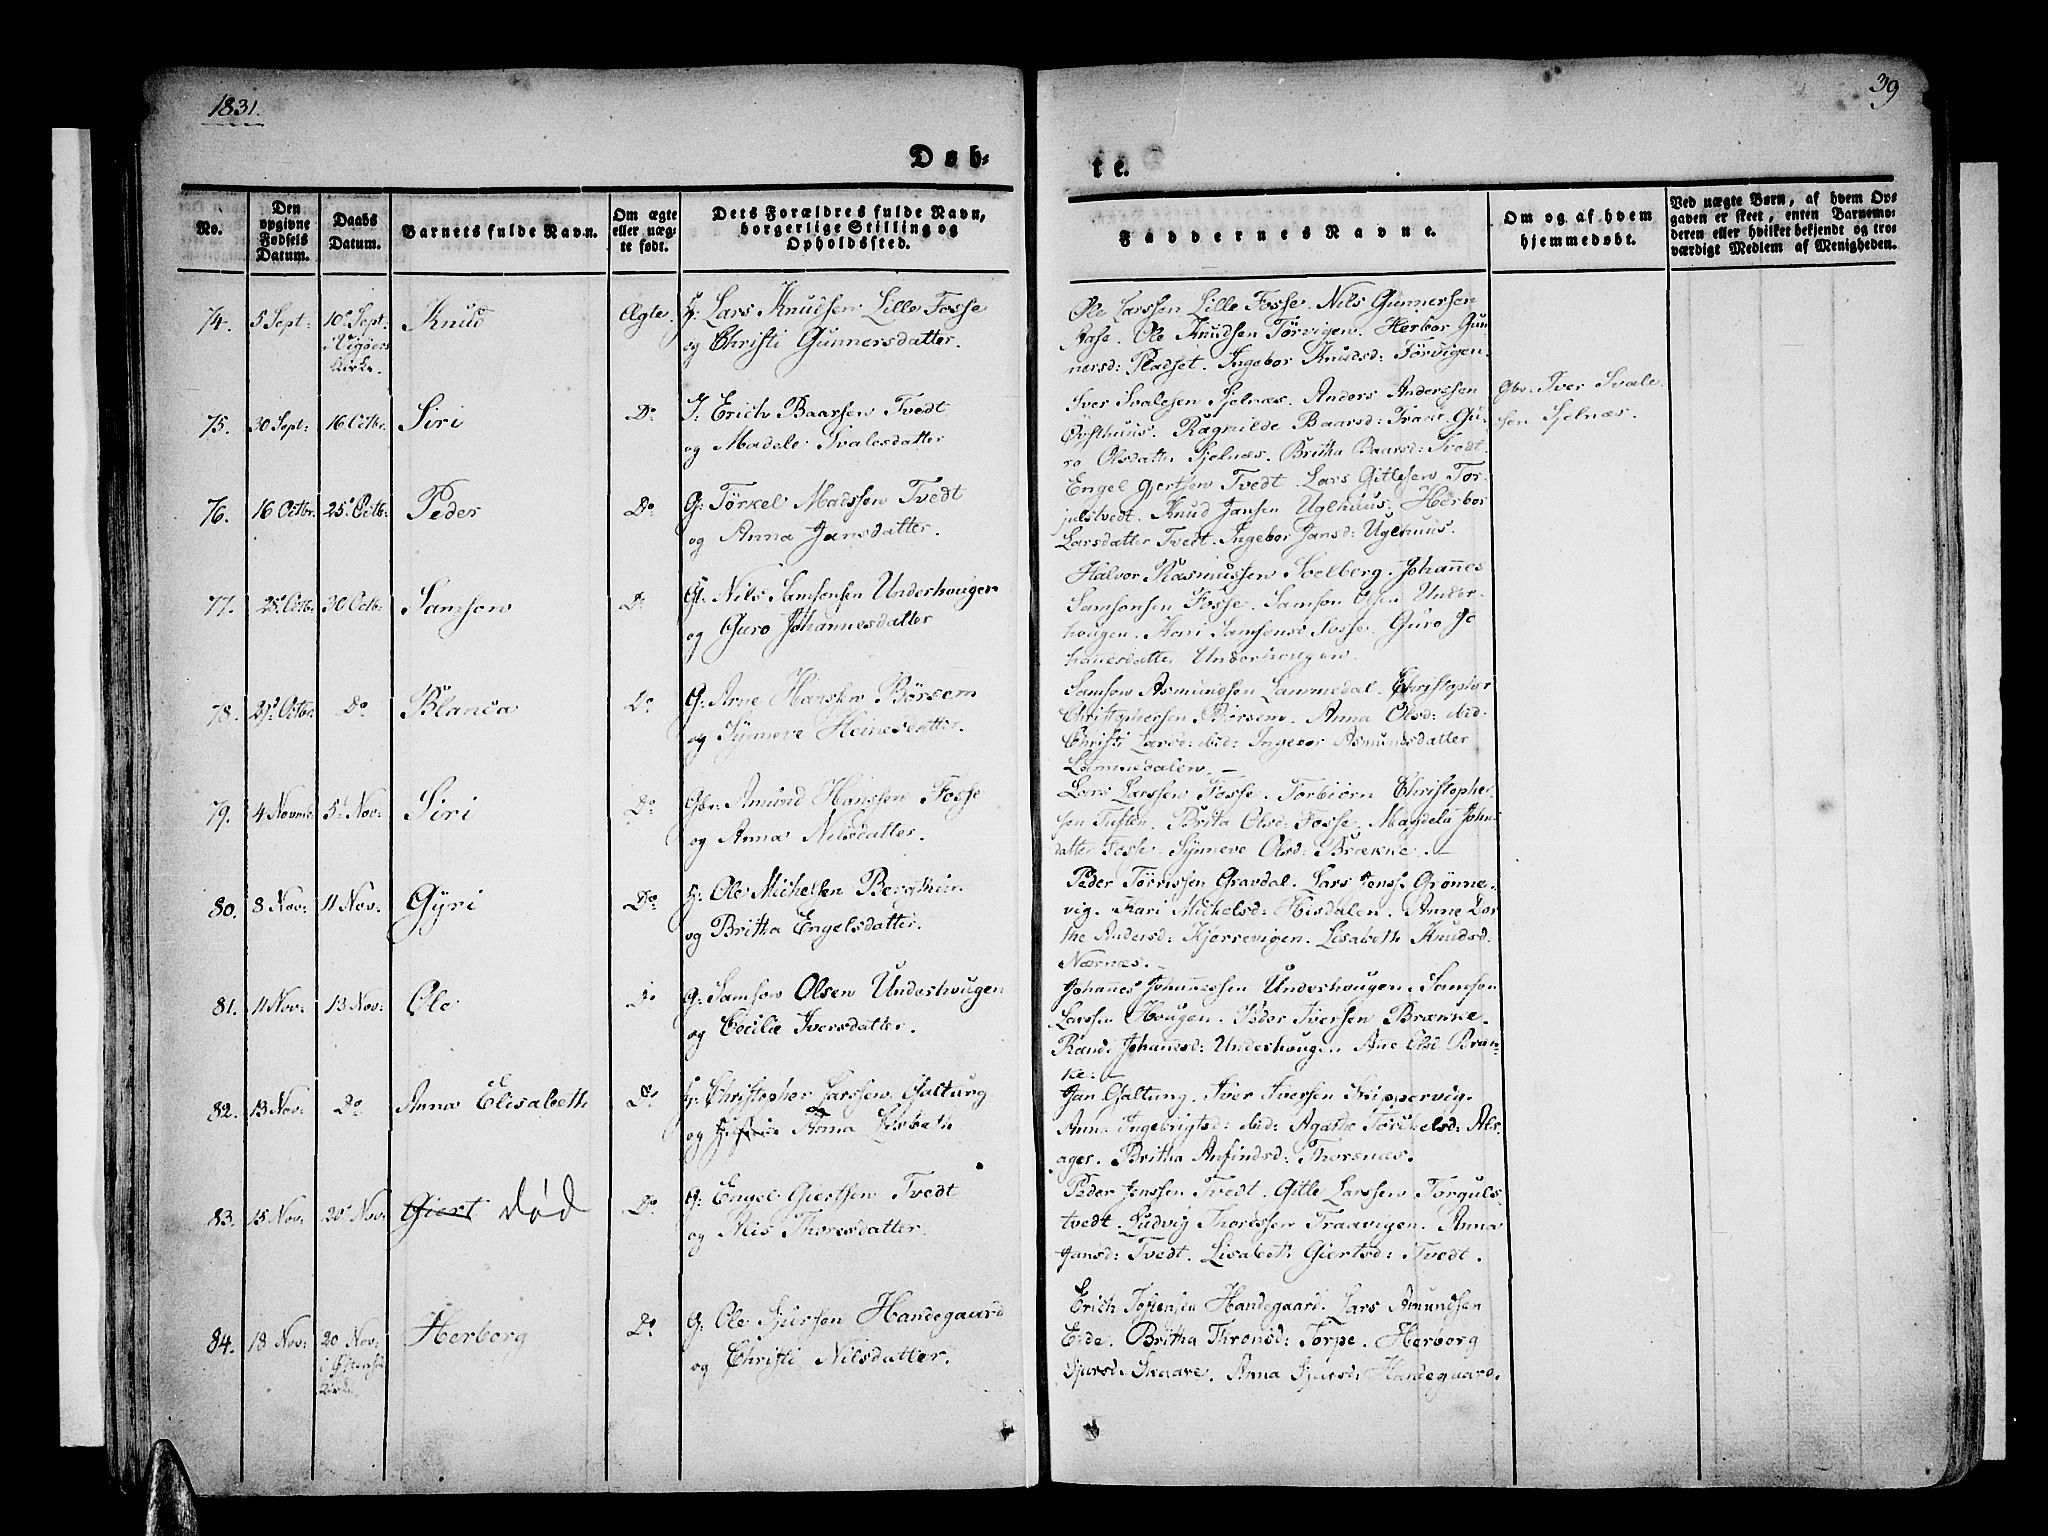 1831.
39
Døb-
te.
No.
Den opgivne Fødsels Datum.
Daabs Datum.
Barnets fulde Navn.
Om ægte eller uægte født.
Dets Forældres fulde Navn, borgerlige Stilling og Opholdssted.
Faddernes Navne.
Om og af hvem hjemmedøbt.
Ved uægte Børn, af hvem Opgaven er skeet, enten Barnemoderen eller hvilket bekjendt og troværdigt Medlem af Menigheden.
74. 5 Sept: 10 Sept: i Vigøers Kirke. Knud Ægte. H: Lars Knudsen Lille Fosse
og Christi Gunnersdatter.
Ole Larssen Lille Fosse. Nils Gunnersen
Aase. Ole Knudsen Törvigen. Herbor Gun
nersd: Pladset. Ingebor Knudsd: Törvigen.
75. 30 Sept: 16 Octbr. Siri Do J: Erich Baarsen Tvedt
og Madele Svalesdatter
Iver Svalesen Sjelnæs. Anders Andersen
Østhuus. Ragnilde Baarsd: Traae. Gu-
ro Olsdatter Sjelnæs. Britha Baarsd: Tvedt.
Gbr. Iver Svale-
sen Sjelnæs.
76. 16 Octbr. 25 Octb: Peder Do G: Törkel Madssen Tvedt
og Anna Jansdatter.
Engel Gertsen Tvedt. Lars Gitlesen Tor-
julstvedt. Knud Jansen Uglhuus. Herbor
Larsdatter Tvedt. Ingebor Jansd: Uglhuus.
77. 25 Octb. 30 Octb: Samson Do G: Nils Samsonsen Underhougen
og Guro Johannesdatter
Halvor Rasmussen Solberg. Johannes
Samsonsen Fosse. Samson Olsen Under-
hougen. Kari Samsonsd Fosse. Guro Jo
hannesdatter Underhougen.
78. 29 Octbr. Do Blanca Do G: Arne Hanssen Börsem
og Synneve Heinesdatter.
Samson Asmundsen Lammedal. Christopher
Christophersen Börsem. Anna Olsd: ibid:
Christi Larsd: ibid: Ingebor Asmundsdatter
Lammedalen.
79. 4 Novmb: 5 Nov: Siri Do Gbr: Amund Hanssen Fosse
og Anna Nilsdatter.
Lars Larssen Fosse. Torbiörn Christopher-
sen Tuften. Brita Olsd: Fosse. Magdela John-
datter Fosse. Synneve Olsd: Brække.
80. 8 Nov: 11 Nov: Gyri Do H: Ole Michelsen Bergthun
og Britha Engelsdatter.
Peder Törrissen Gravdal. Lars Jenss. Grönne-
vig. Kari Michelsd: Hisdalen. Anne Dor
the Andersd: Kjerrevigen. Lisabeth Knudsd:
Nærnæs.
81. 11 Nov: 13 Nov: Ole Do G: Samson Olsen Underhougen
og Cecilie Iversdatter.
Johannes Johannessen Underhougen. Samson
Larssen Hougen. Peder Iversen Brække.
Randi Johannsd: Underhougen Ane Olsd Bræk-
ke:
82. 13 Nov: Do Anna Elisabeth Do H: Christopher Larssen Galtung
og Anna Lisbeth
Jan Galtung. Iver Iversen Skippervig.
Anna Ingebrigtsd: ibid: Agathe Törchelsd: Als-
ager. Britha Anfindsd: Thorsnæs.
83. 15 Nov: 20 Nov: Giert død Do G: Engel Giertsen Tvedt
og Mis Thoresdatter.
Peder Jenssen Tvedt. Gitle Larssen Torguls
tvedt. Ludvig Thoressen Traavigen. Anna
Jansd: Tvedt. Lisabeth Giertsd: Tvedt.
84. 18 Nov: 20 Nov: i Østensø Kirke Herborg Do G: Ole Sjursen Handegaard
og Christi Nilsdatter.
Erich Tostensen Handegaard. Lars Amundsen
Eide. Britha Thronsd: Torpe. Herborg
Sjursd: Skaare. Anna Sjursd: Handegaard.